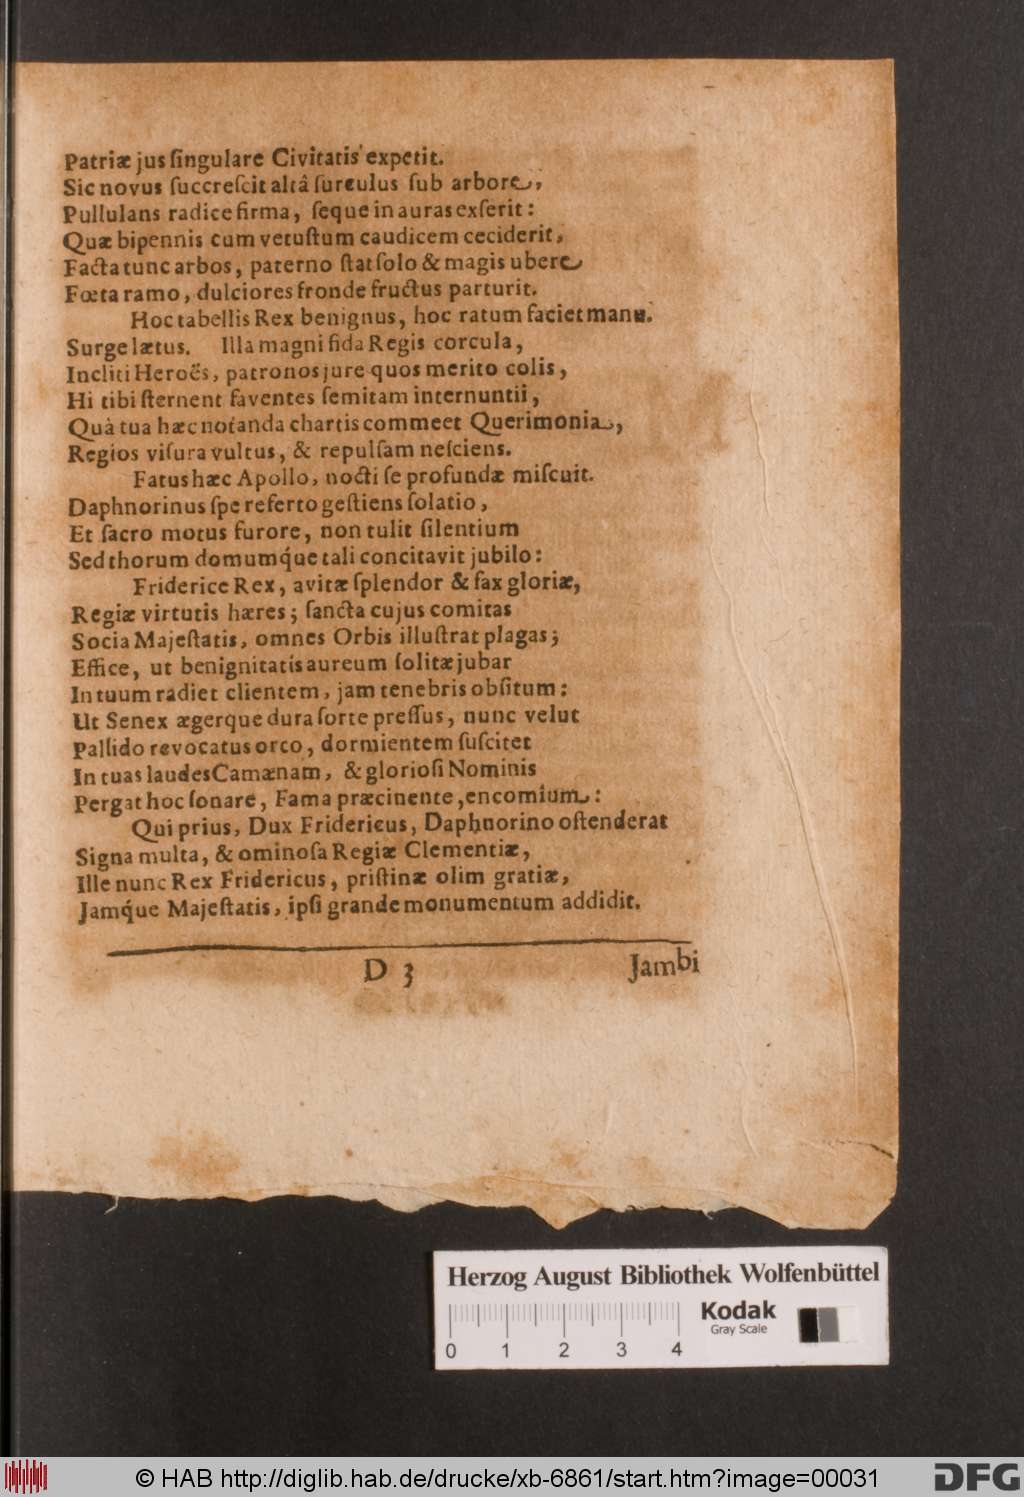 Patriæ jus ſingulare Civitatis expetit.
Sic novus ſuccreſcit altâ ſurculus ſub arbore,
Pullulans radice firma, ſeque in auras exſerit:
Quæ bipennis cum vetuſtum caudicem ceciderit,
Facta tunc arbos, paterno ſtat ſolo & magis ubere
Fœta ramo, dulciores fronde fructus parturit.
Hoc tabellis Rex benignus, hoc ratum faciet manu.
Surge lætus. Illa magni fida Regis corcula,
Incliti Heroës, patronos jure quos merito colis,
Hi tibi ſternent faventes ſemitam internuntii,
Quà tua hæc notanda chartis commeet Querimonia,
Regios viſura vultus, & repulſam neſciens.
Fatus hæc Apollo, nocti ſe profundæ miſcuit.
Daphnorinus ſpe referto geſtiens ſolatio,
Et ſacro motus furore, non tulit ſilentium
Sed thorum domumq́ue tali concitavit jubilo:
Friderice Rex, avitæ ſplendor & fax gloriæ,
Regiæ virtutis hæres; ſancta cujus comitas
Socia Majeſtatis, omnes Orbis illuſtrat plagas;
Effice, ut benignitatis aureum ſolitæ jubar
In tuum radiet clientem, jam tenebris obſitum:
Ut Senex ægerque dura ſorte preſſus, nunc velut
Pallido revocatus orco, dormientem ſuſcitet
In tuas laudes Camænam, & glorioſi Nominis
Pergat hoc ſonare, Fama præcinente, encomium:
Qui prius, Dux Fridericus, Daphnorino oſtenderat
Signa multa, & ominoſa Regiæ Clementiæ,
Ille nunc Rex Fridericus, priſtinæ olim gratiæ,
Jamq́ue Majeſtatis, ipſi grande monumentum addidit.
D 3
Jambi
Herzog August Bibliothek Wolfenbüttel
Kodak
Gray Scale
0 1 2 3 4
© HAB http://diglib.hab.de/drucke/xb-6861/start.htm?image=00031
DFG